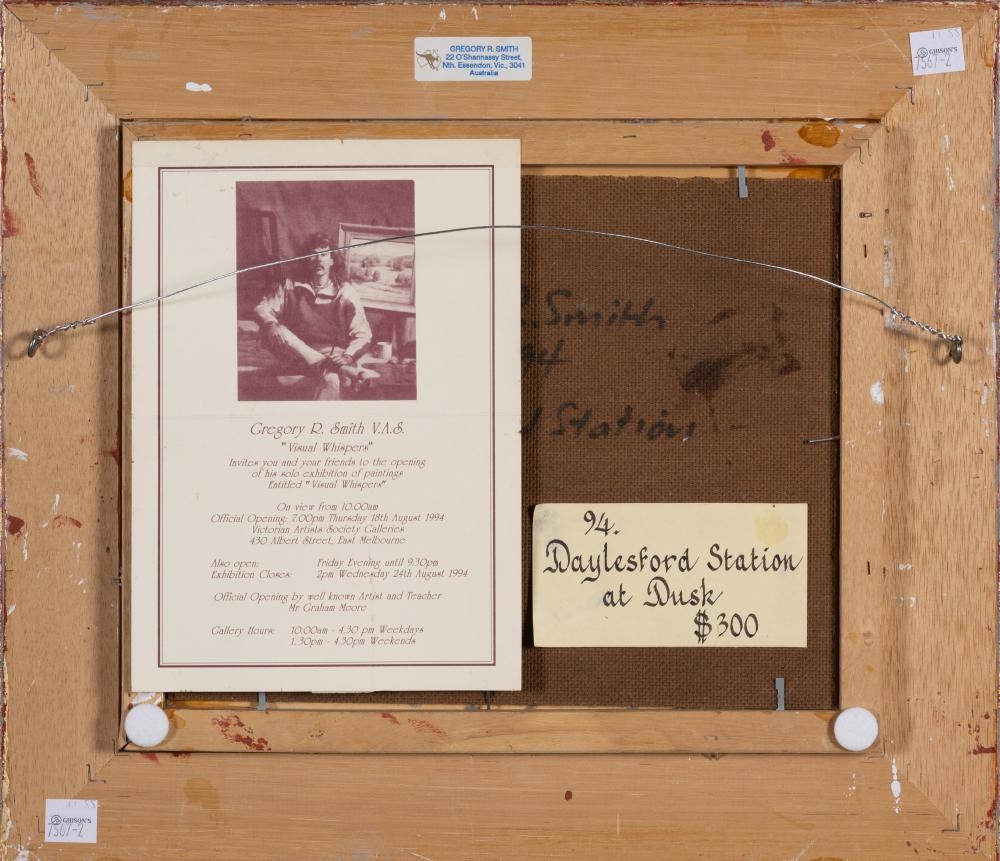 GREGORY R. SMITH
22 O'Shannassy Street,
Nth. Essendon, Vic., 3041
Australia
GIBSON'S
7567-2
Gregory R. Smith V.A.S.
"Visual Whispers"
Invites you and your friends to the opening
of his solo exhibition of paintings
Entitled "Visual Whispers"
On view from 10.00am
Official Opening: 7.00pm Thursday 18th August 1994
Victorian Artists Society Galleries
430 Albert Street, East Melbourne
Also open: Friday Evening until 9.30pm
Exhibition Closes: 2pm Wednesday 24th August 1994
Official Opening by well known Artist and Teacher
Mr Graham Moore
Gallery Hours: 10.00am - 4.30 pm Weekdays
1.30pm - 4.30pm Weekends
R. Smith
94
Station
94.
Daylesford Station
at Dusk
$300
GIBSON'S
7567-2